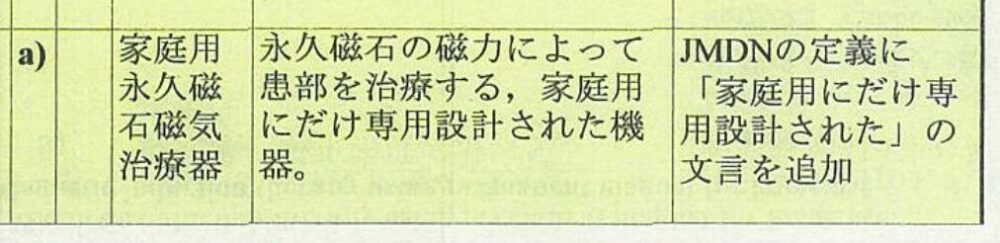 a)
家庭用
永久磁
石磁気
治療器
永久磁石の磁力によって
患部を治療する，家庭用
にだけ専用設計された機
器。
JMDNの定義に
「家庭用にだけ専
用設計された」の
文言を追加